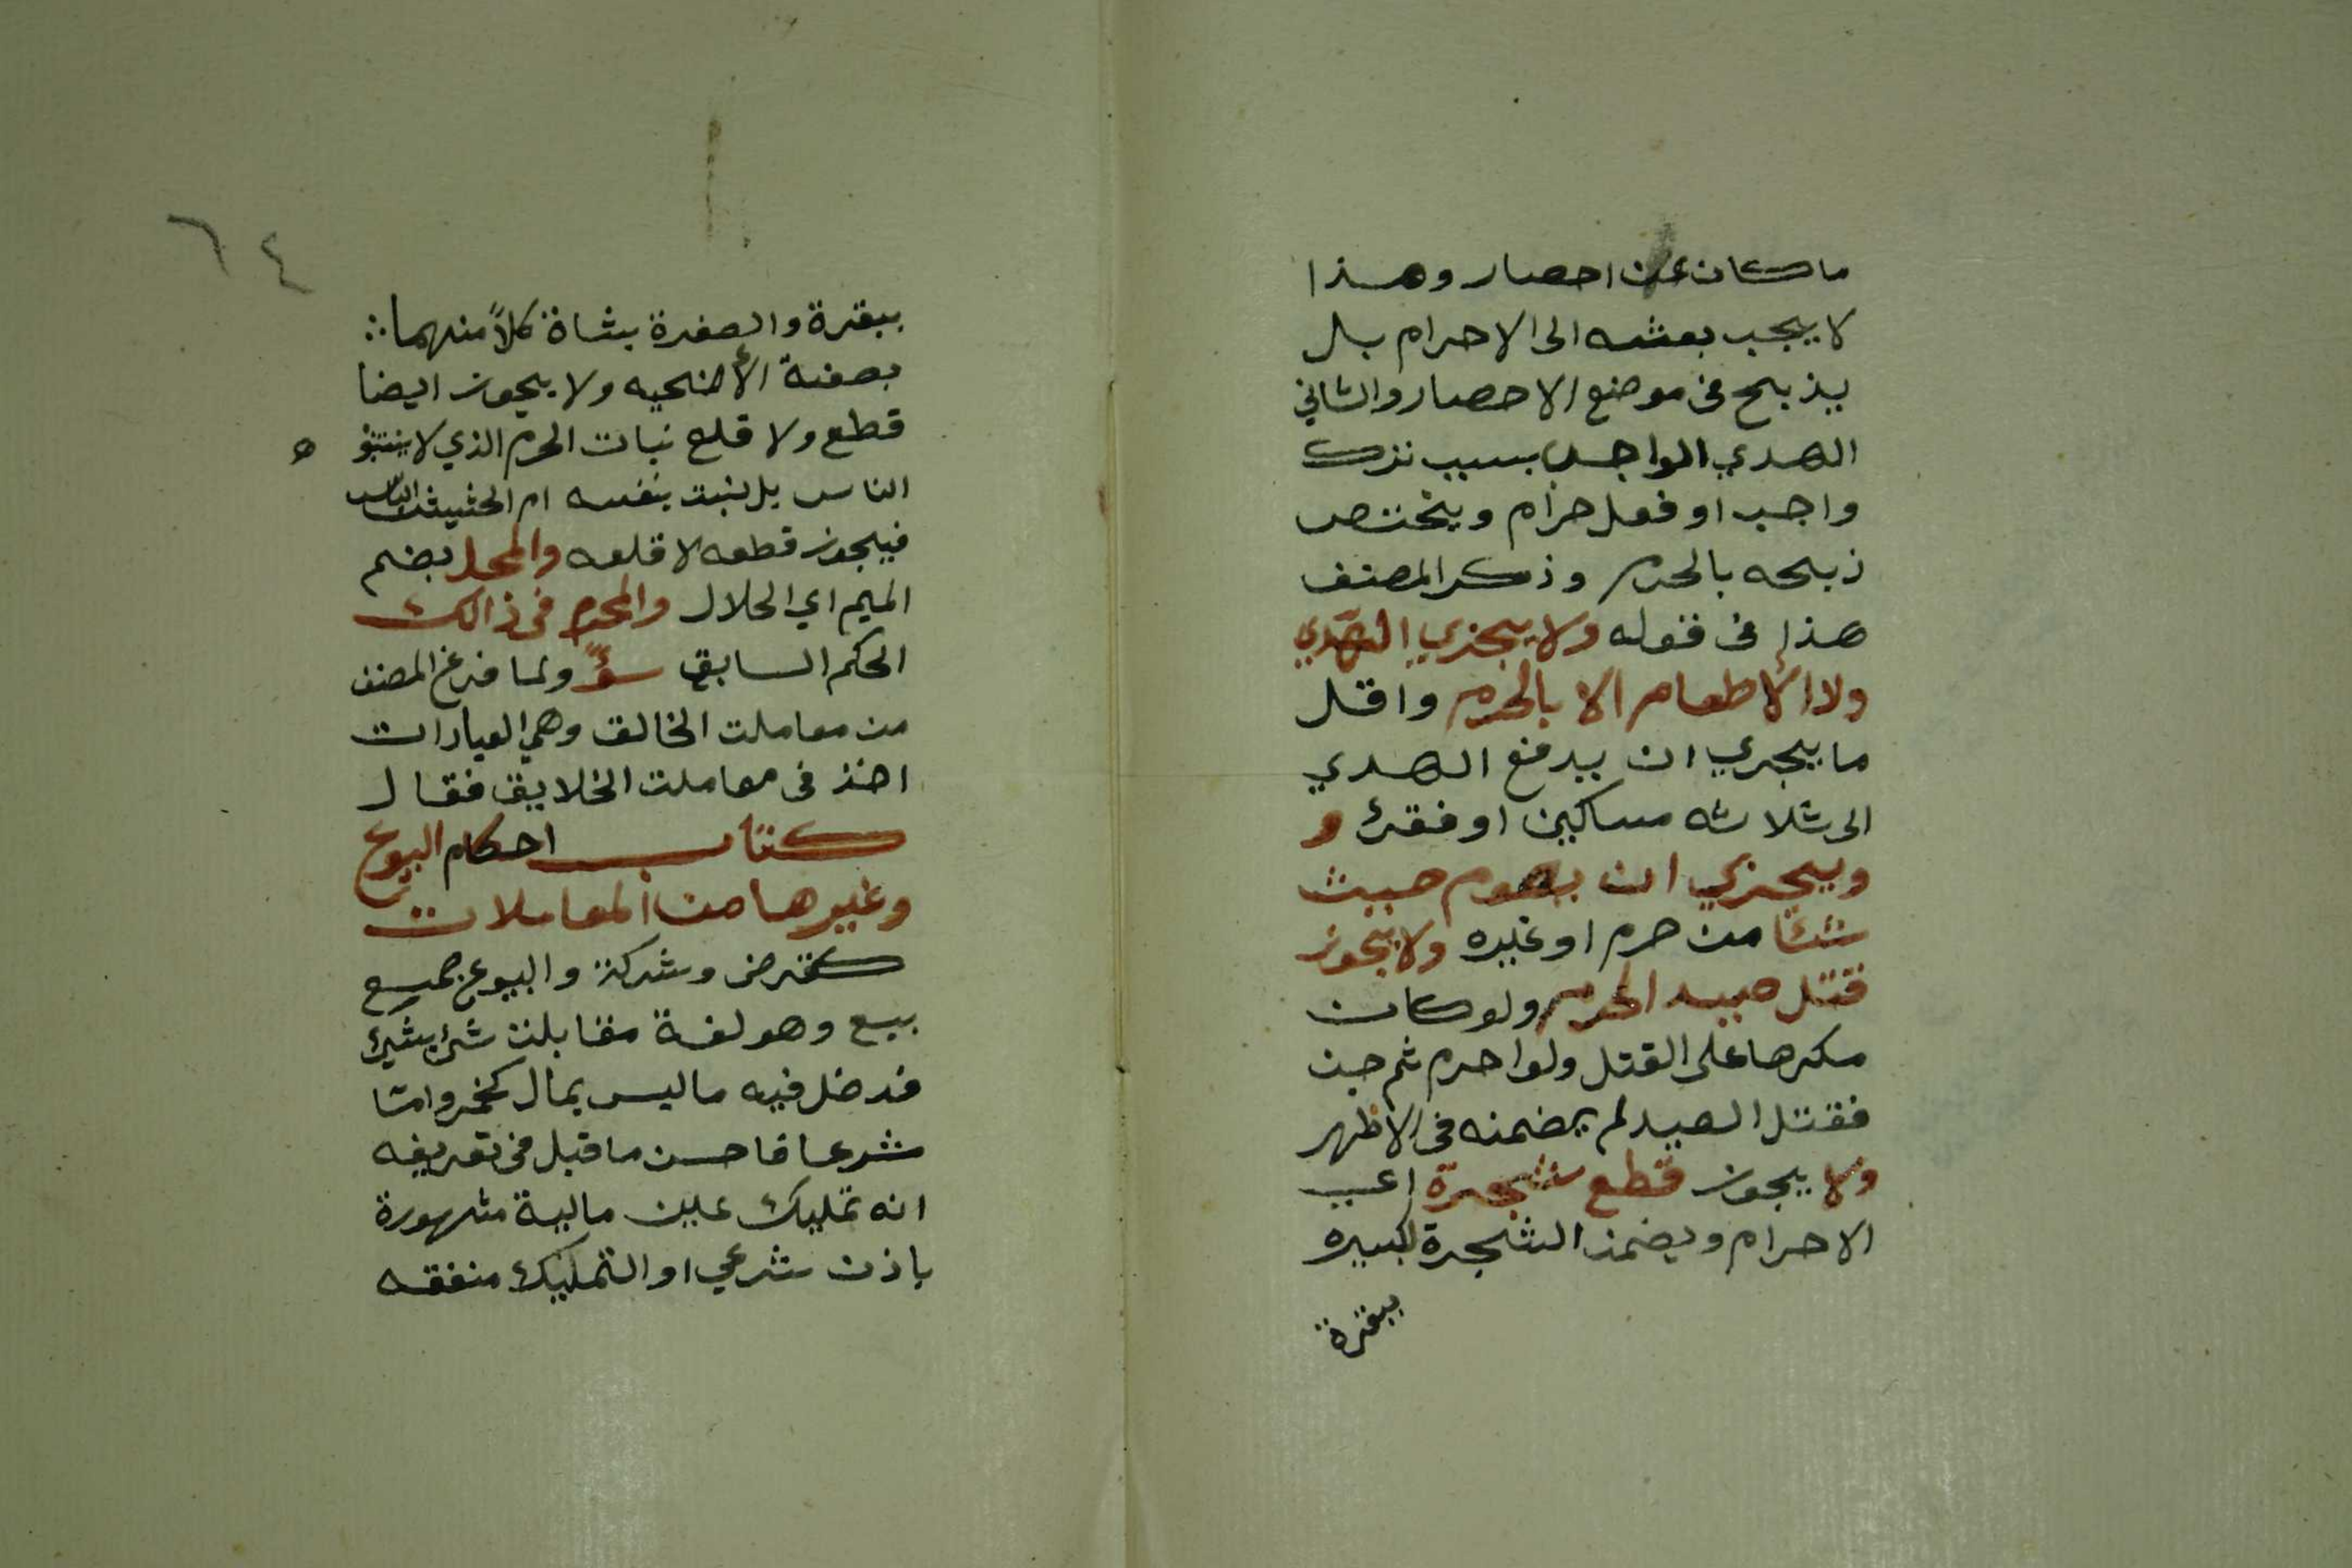 ما كان عن احصار وهذا
لا يجب بعثه الى الاحرام بل
يذبح فى موضع الاحصار والثاني
الهدي الواجب بسبب ترك
واجب او فعل حرام ويختص
ذبحه بالحرم وذكر المصنف
هذا فى قوله ولا يجزي الهدي
ولا الإطعام الا بالحرم واقل
ما يجزي ان يدفع الهدي
الى ثلاثه مساكين او فقرئ و
ويجزي ان يصوم حيث
شئا من حرم او غيره ولا يجوز
قتل صيد الحرم ولو كان
مكرها على القتل ولو احرم ثم جن
فقتل الصيد لم يضمنه فى الاظهر
ولا يجوز قطع شجرة اعي
الاحرام ويضمن الشجرة الكبيره
ببقرة
٦٤
ببقرة والصغرة بشاة كلاً منهما
بصفة الأضحيه ولا يجوز ايضا
قطع ولا قلع نبات الحرم الذي لا ينبتو ه
الناس بل ينبت بنفسه ام الحشيش اليابس
فيجوز قطعه لا قلعه والمحل بضم
الميم اي الحلال والمحرم فى ذالك
الحكم السابق سؤً ولما فرغ المصنف
من معاملت الخالق وهي العبادات
اخذ فى معاملت الخلايق فقال
كتاب احكام البيوع
وغيرها من المعاملات
كقرض وشركة والبيوع جميع
بيع وهو لغة مقابلت شئ بشئ
فدخل فيه ما ليس بمال كخمر وامّا
شرعا فاحسن ما قيل فى تعريفه
انه تمليك عين مالية مشهورة
باذن شرعي او التمليك منفقه